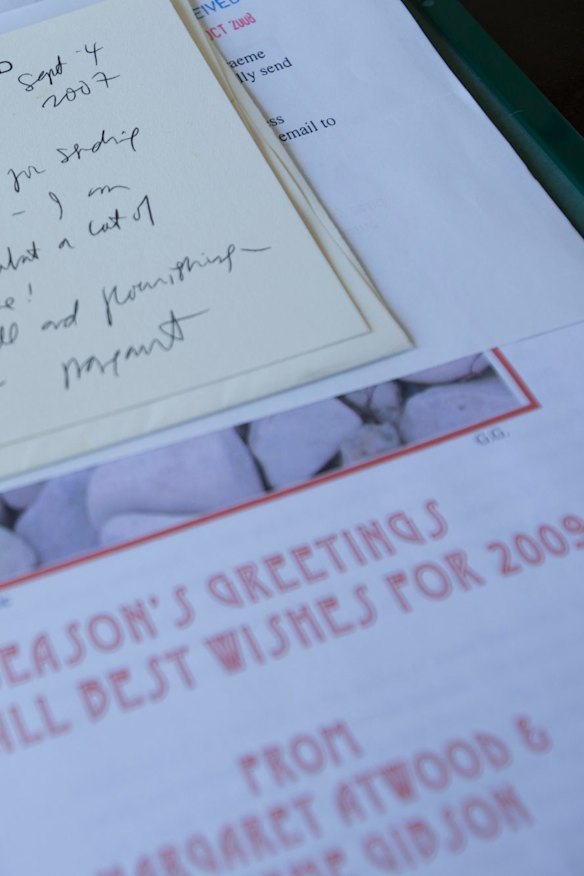 D
Sept 4
2007
for sending
- I am
what a cat of
e!
and flourishing -
Margaret
EIVED
OCT 2008
aeme
lly send
ss
email to
G.G.
SEASON'S GREETINGS
ALL BEST WISHES FOR 2009
FROM
MARGARET ATWOOD &
ME GIBSON